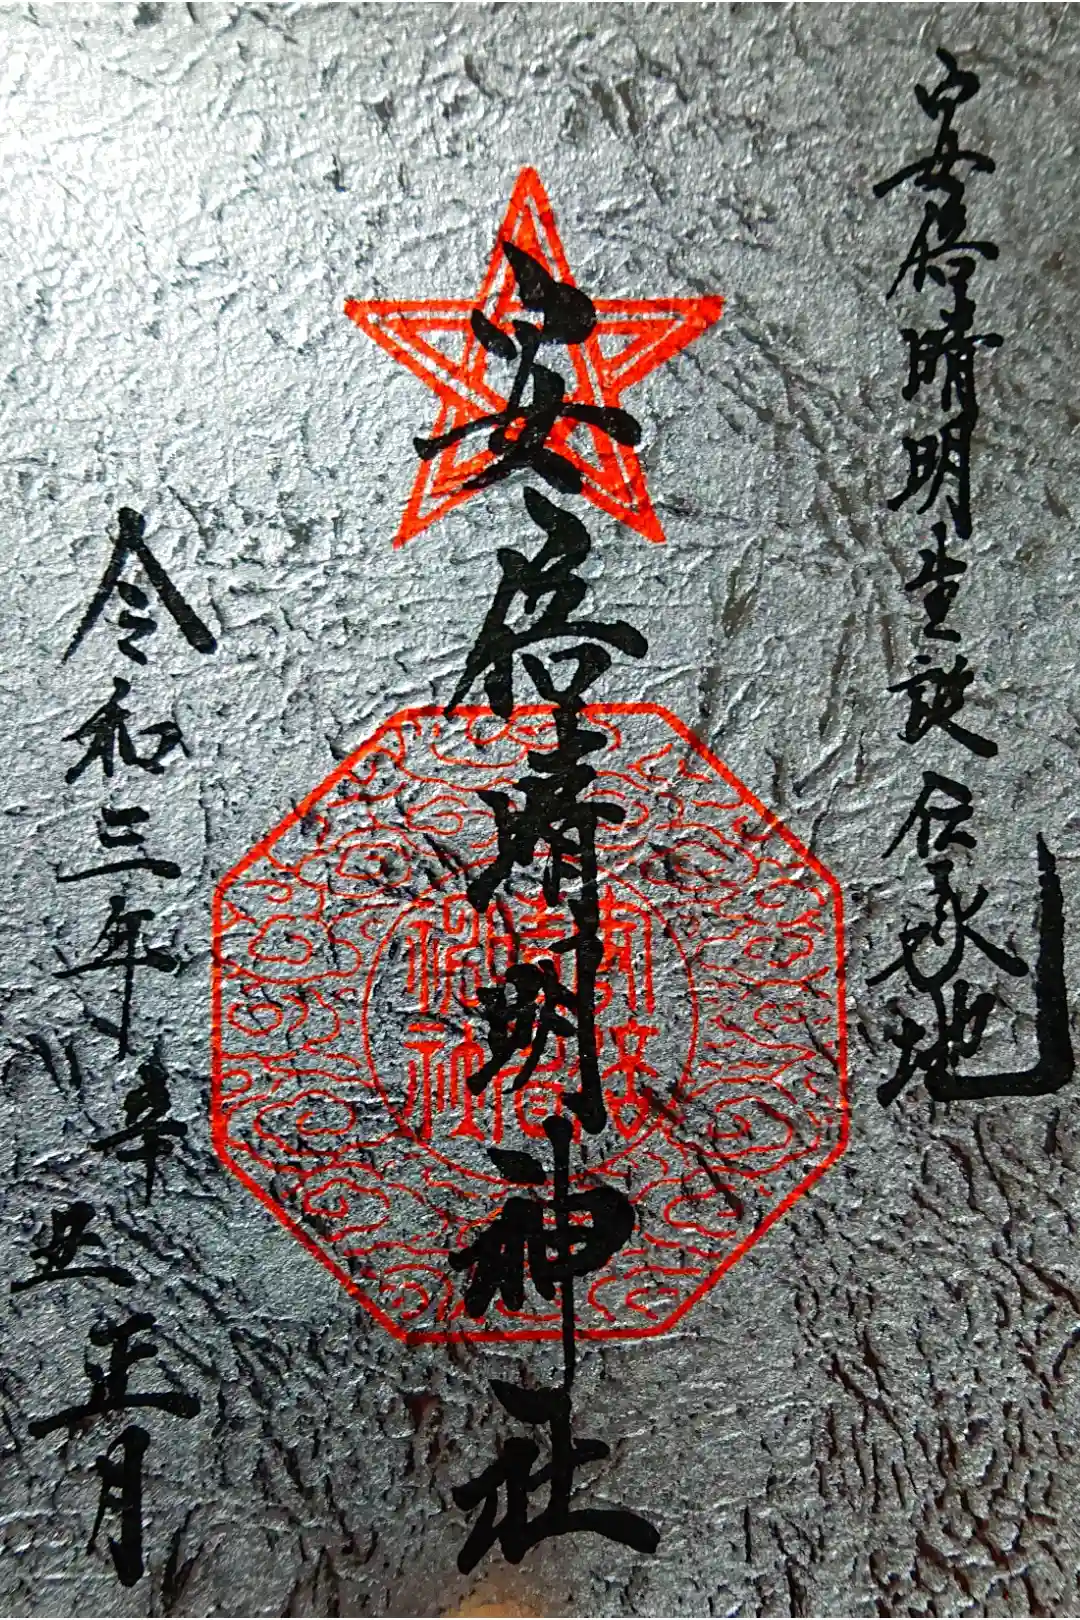 安倍晴明生誕伝承地
安倍晴明神社
安倍
晴明
神社
令和三年辛丑正月